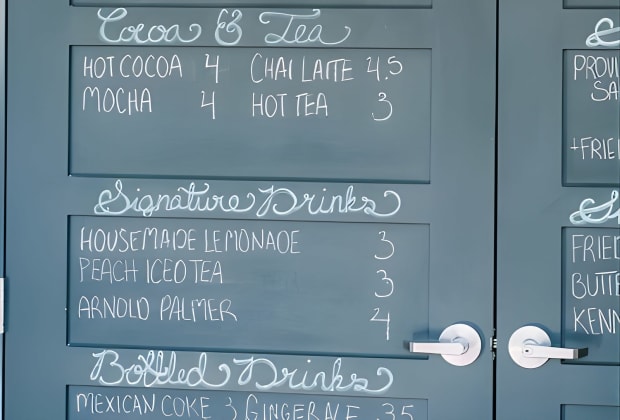 Cocoa & Tea
HOT COCOA 4 CHAI LATTE 4.5
MOCHA 4 HOT TEA 3
Signature Drinks
HOUSEMADE LEMONADE 3
PEACH ICED TEA 3
ARNOLD PALMER 4
Bottled Drinks
MEXICAN COKE 3 GINGER ALE 3.5
PROVI
SA
+FRIE
FRIED
BUTTE
KENN